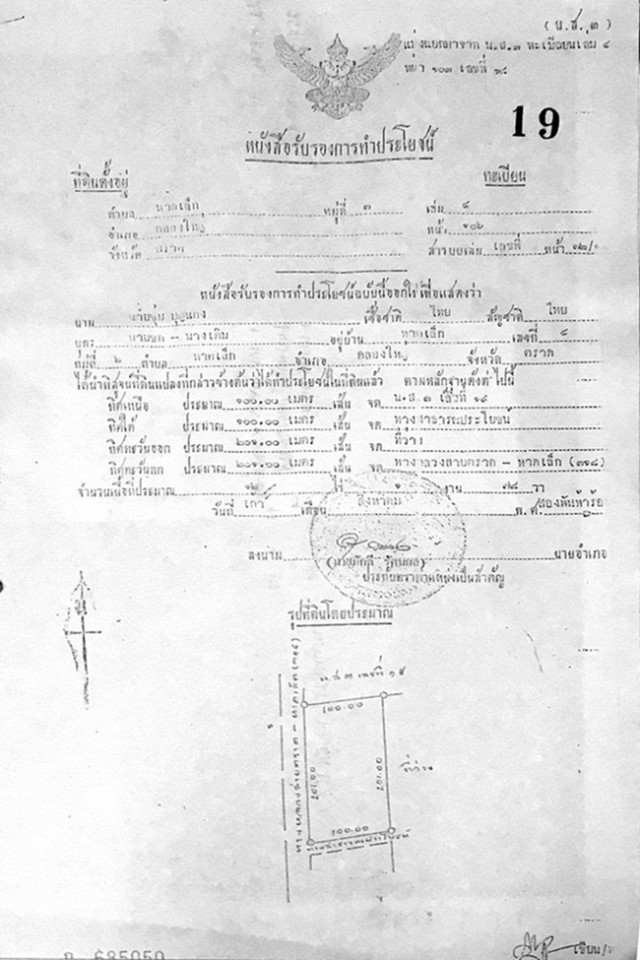 ( น.ส. ๓ )
แบ่งแยกมาจาก น.ส.๓ ทะเบียนเล่ม ๔
หน้า ๑๐๓ เลขที่ ๑๘
19
หนังสือรับรองการทำประโยชน์
ที่ดินตั้งอยู่ ทะเบียน
ตำบล หาดเล็ก หมู่ที่ ๓ เล่ม ๔
อำเภอ คลองใหญ่ หน้า ๑๐๖
จังหวัด ตราด สารบบเล่ม เลขที่ หน้า
หนังสือรับรองการทำประโยชน์ฉบับนี้ออกให้เพื่อแสดงว่า
นาย เชื้อชาติ ไทย สัญชาติ ไทย
บุตร อยู่บ้าน หาดเล็ก เลขที่ ๔
หมู่ที่ ๖ ตำบล หาดเล็ก อำเภอ คลองใหญ่ จังหวัด ตราด
ได้นำพิสูจน์ที่ดินแปลงที่กล่าวข้างต้นว่าได้ทำประโยชน์ในที่ดินแล้ว ตามหลักฐานดังต่อไปนี้
ทิศเหนือ ประมาณ ๑๐๐.๐๐ เมตร เส้น จด น.ส.๓ เลขที่ ๑๘
ทิศใต้ ประมาณ ๑๐๐.๐๐ เมตร เส้น จด ทางสาธารณะประโยชน์
ทิศตะวันออก ประมาณ ๒๐๑.๐๐ เมตร เส้น จด ที่ว่าง
ทิศตะวันตก ประมาณ ๒๐๑.๐๐ เมตร เส้น จด ทางหลวงสายตราด - หาดเล็ก (๓๑๘)
จำนวนเนื้อที่ประมาณ ๑๒ ไร่ งาน ๗๘ วา
วันที่ เก้า เดือน สิงหาคม พ.ศ. สองพันห้าร้อย
ลงนาม นายอำเภอ
ประทับตราตำแหน่งเป็นสำคัญ
รูปที่ดินโดยประมาณ
น.ส.๓ เลขที่ ๑๘
100.00
ทางหลวงสายตราด - หาดเล็ก (๓๑๘)
201.00
201.00
ที่ว่าง
100.00
ทางสาธารณะประโยชน์
685050
เขียน/